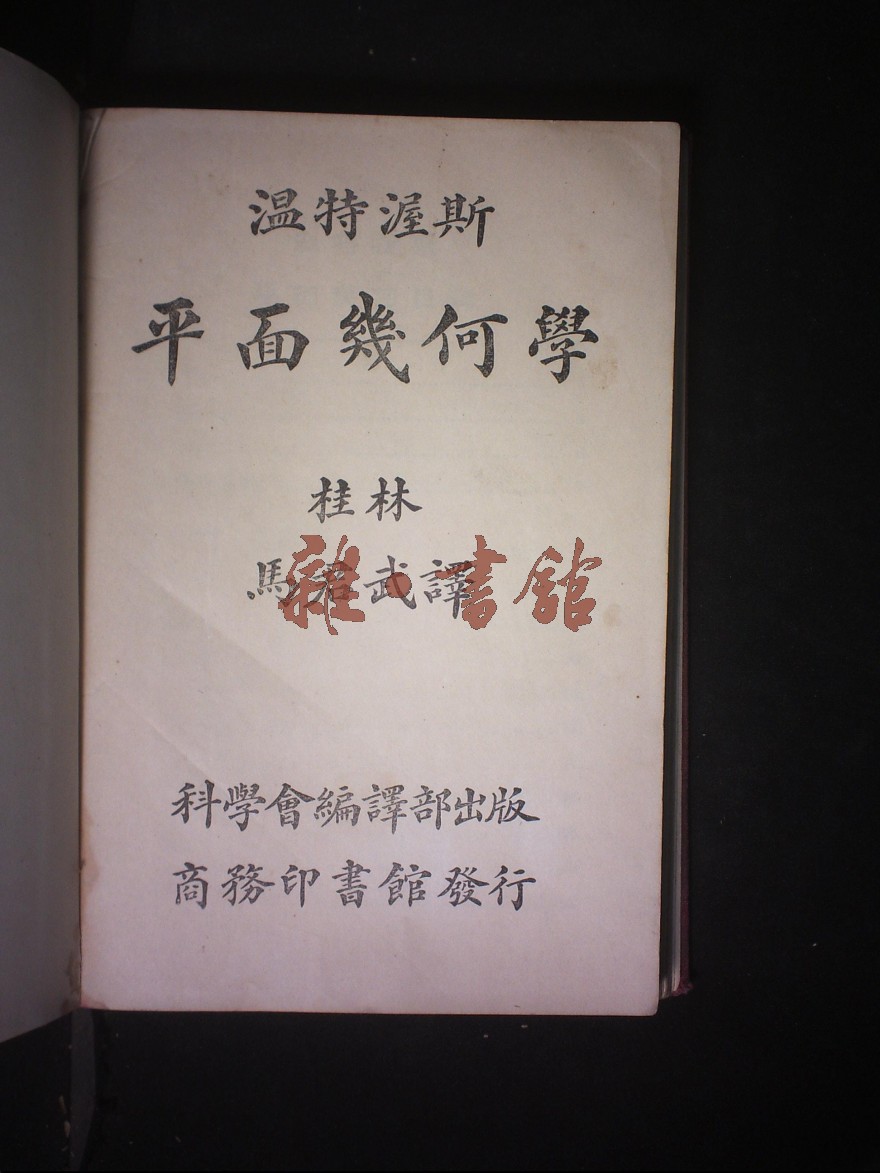 温特渥斯
平面幾何學
桂林
馬君武譯
雜·書館
科學會編譯部出版
商務印書館發行